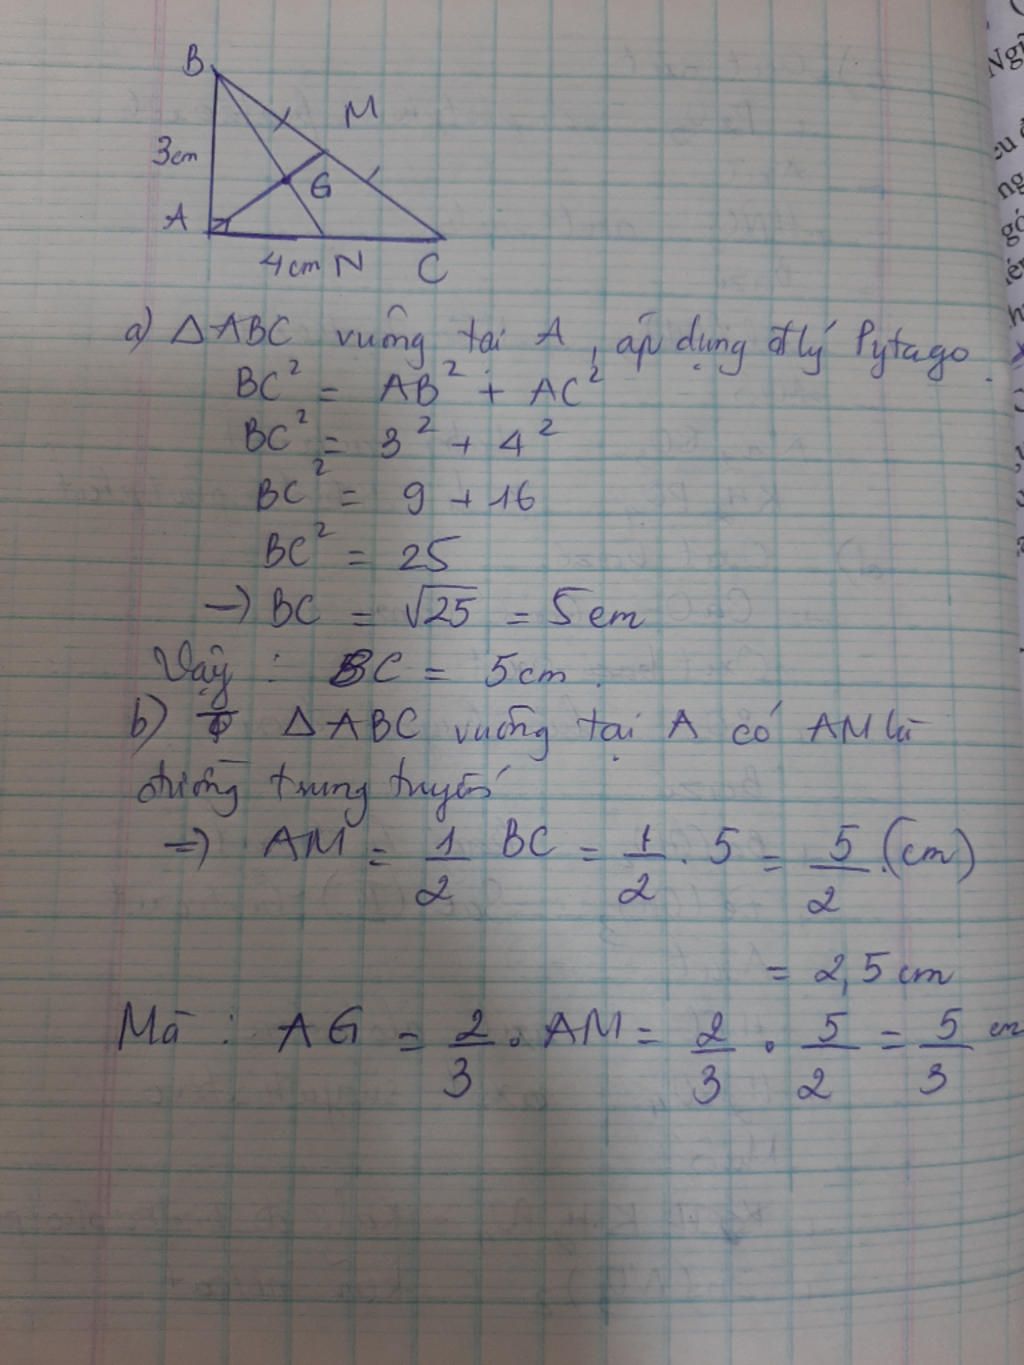 B
M
3cm
G
A
4cm N C
a) Δ ABC vuông tại A, áp dụng đlý Pytago.
BC² = AB² + AC²
BC² = 3² + 4²
BC² = 9 + 16
BC² = 25
→ BC = √25 = 5 cm
Vậy : BC = 5cm.
b) Δ ABC vuông tại A có AM là
đường trung tuyến
⇒ AM = 1/2 BC = 1/2 . 5 = 5/2 (cm)
= 2,5 cm
Mà : AG = 2/3 . AM = 2/3 . 5/2 = 5/3 cm